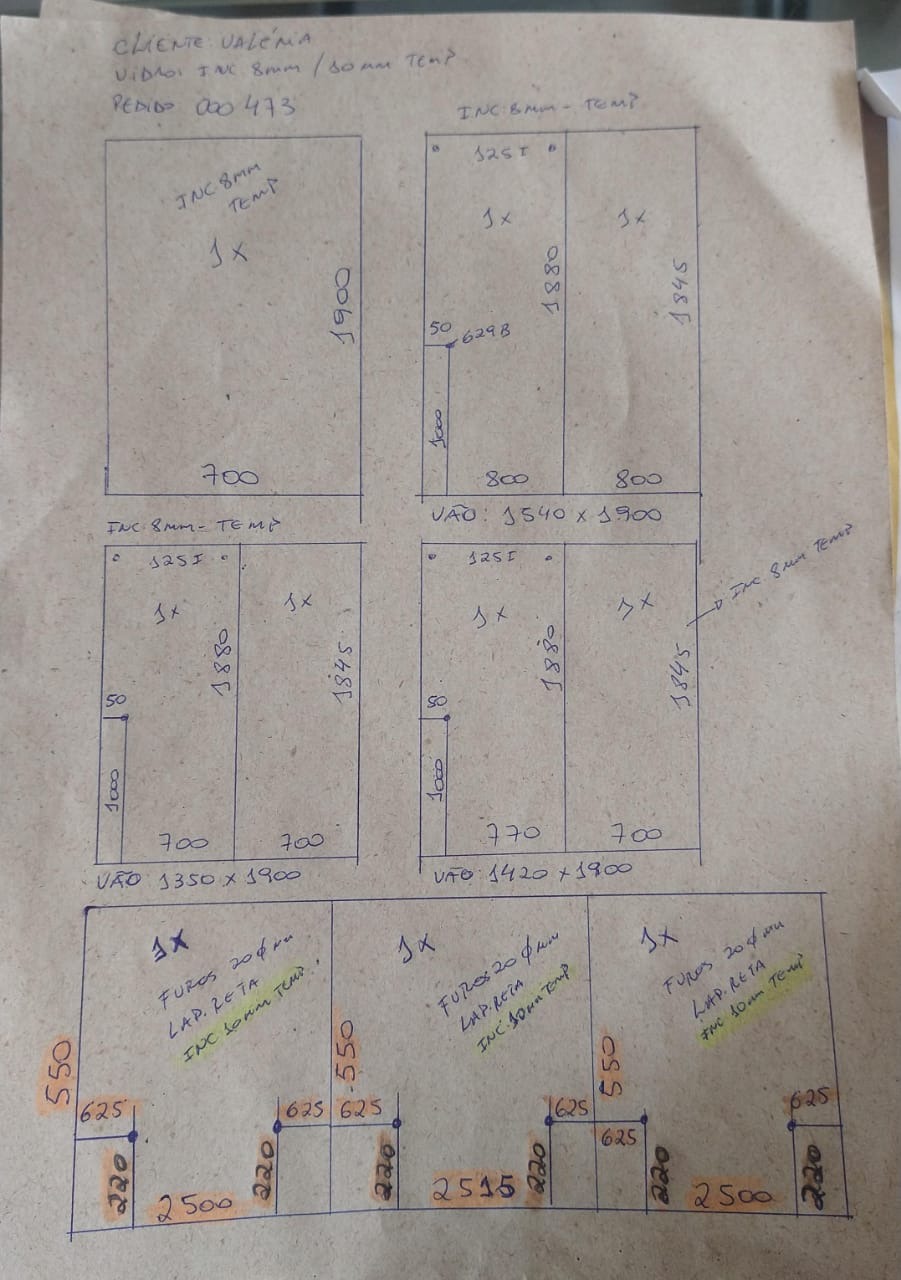 CLIENTE: VALÉRIA
VIDRO: INC 8mm / 10mm TEMP
PEDIDO 000 473
INC 8mm
TEMP
1x
1900
700
INC 8mm - TEMP
125I
1x
1x
1880
1845
50
629B
1000
800
800
VÃO: 1540 x 1900
INC 8mm - TEMP
125I
1x
1x
1880
1845
50
1000
700
700
VÃO 1350 x 1900
125I
1x
1x
INC 8mm TEMP
1880
1845
50
1000
770
700
VÃO: 1420 x 1900
1x
FUROS 20 ϕ mm
LAP. RETA
INC 10mm TEMP.
550
625
625
220
220
2500
1x
FUROS 20 ϕ mm
LAP. RETA
INC 10mm TEMP
550
625
625
220
220
2515
1x
FUROS 20 ϕ mm
LAP. RETA
INC 10mm TEMP
550
625
625
220
220
2500